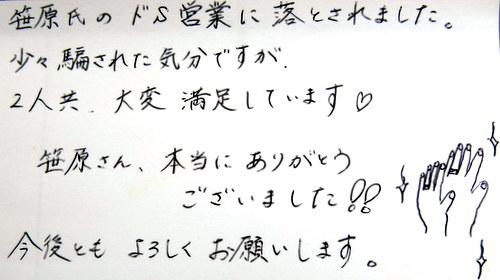 笹原氏の ドS営業に 落とされました。
少々騙された気分ですが、
2人共、大変 満足しています♡
笹原さん、本当に ありがとう
ございました!!
今後とも よろしく お願いします。